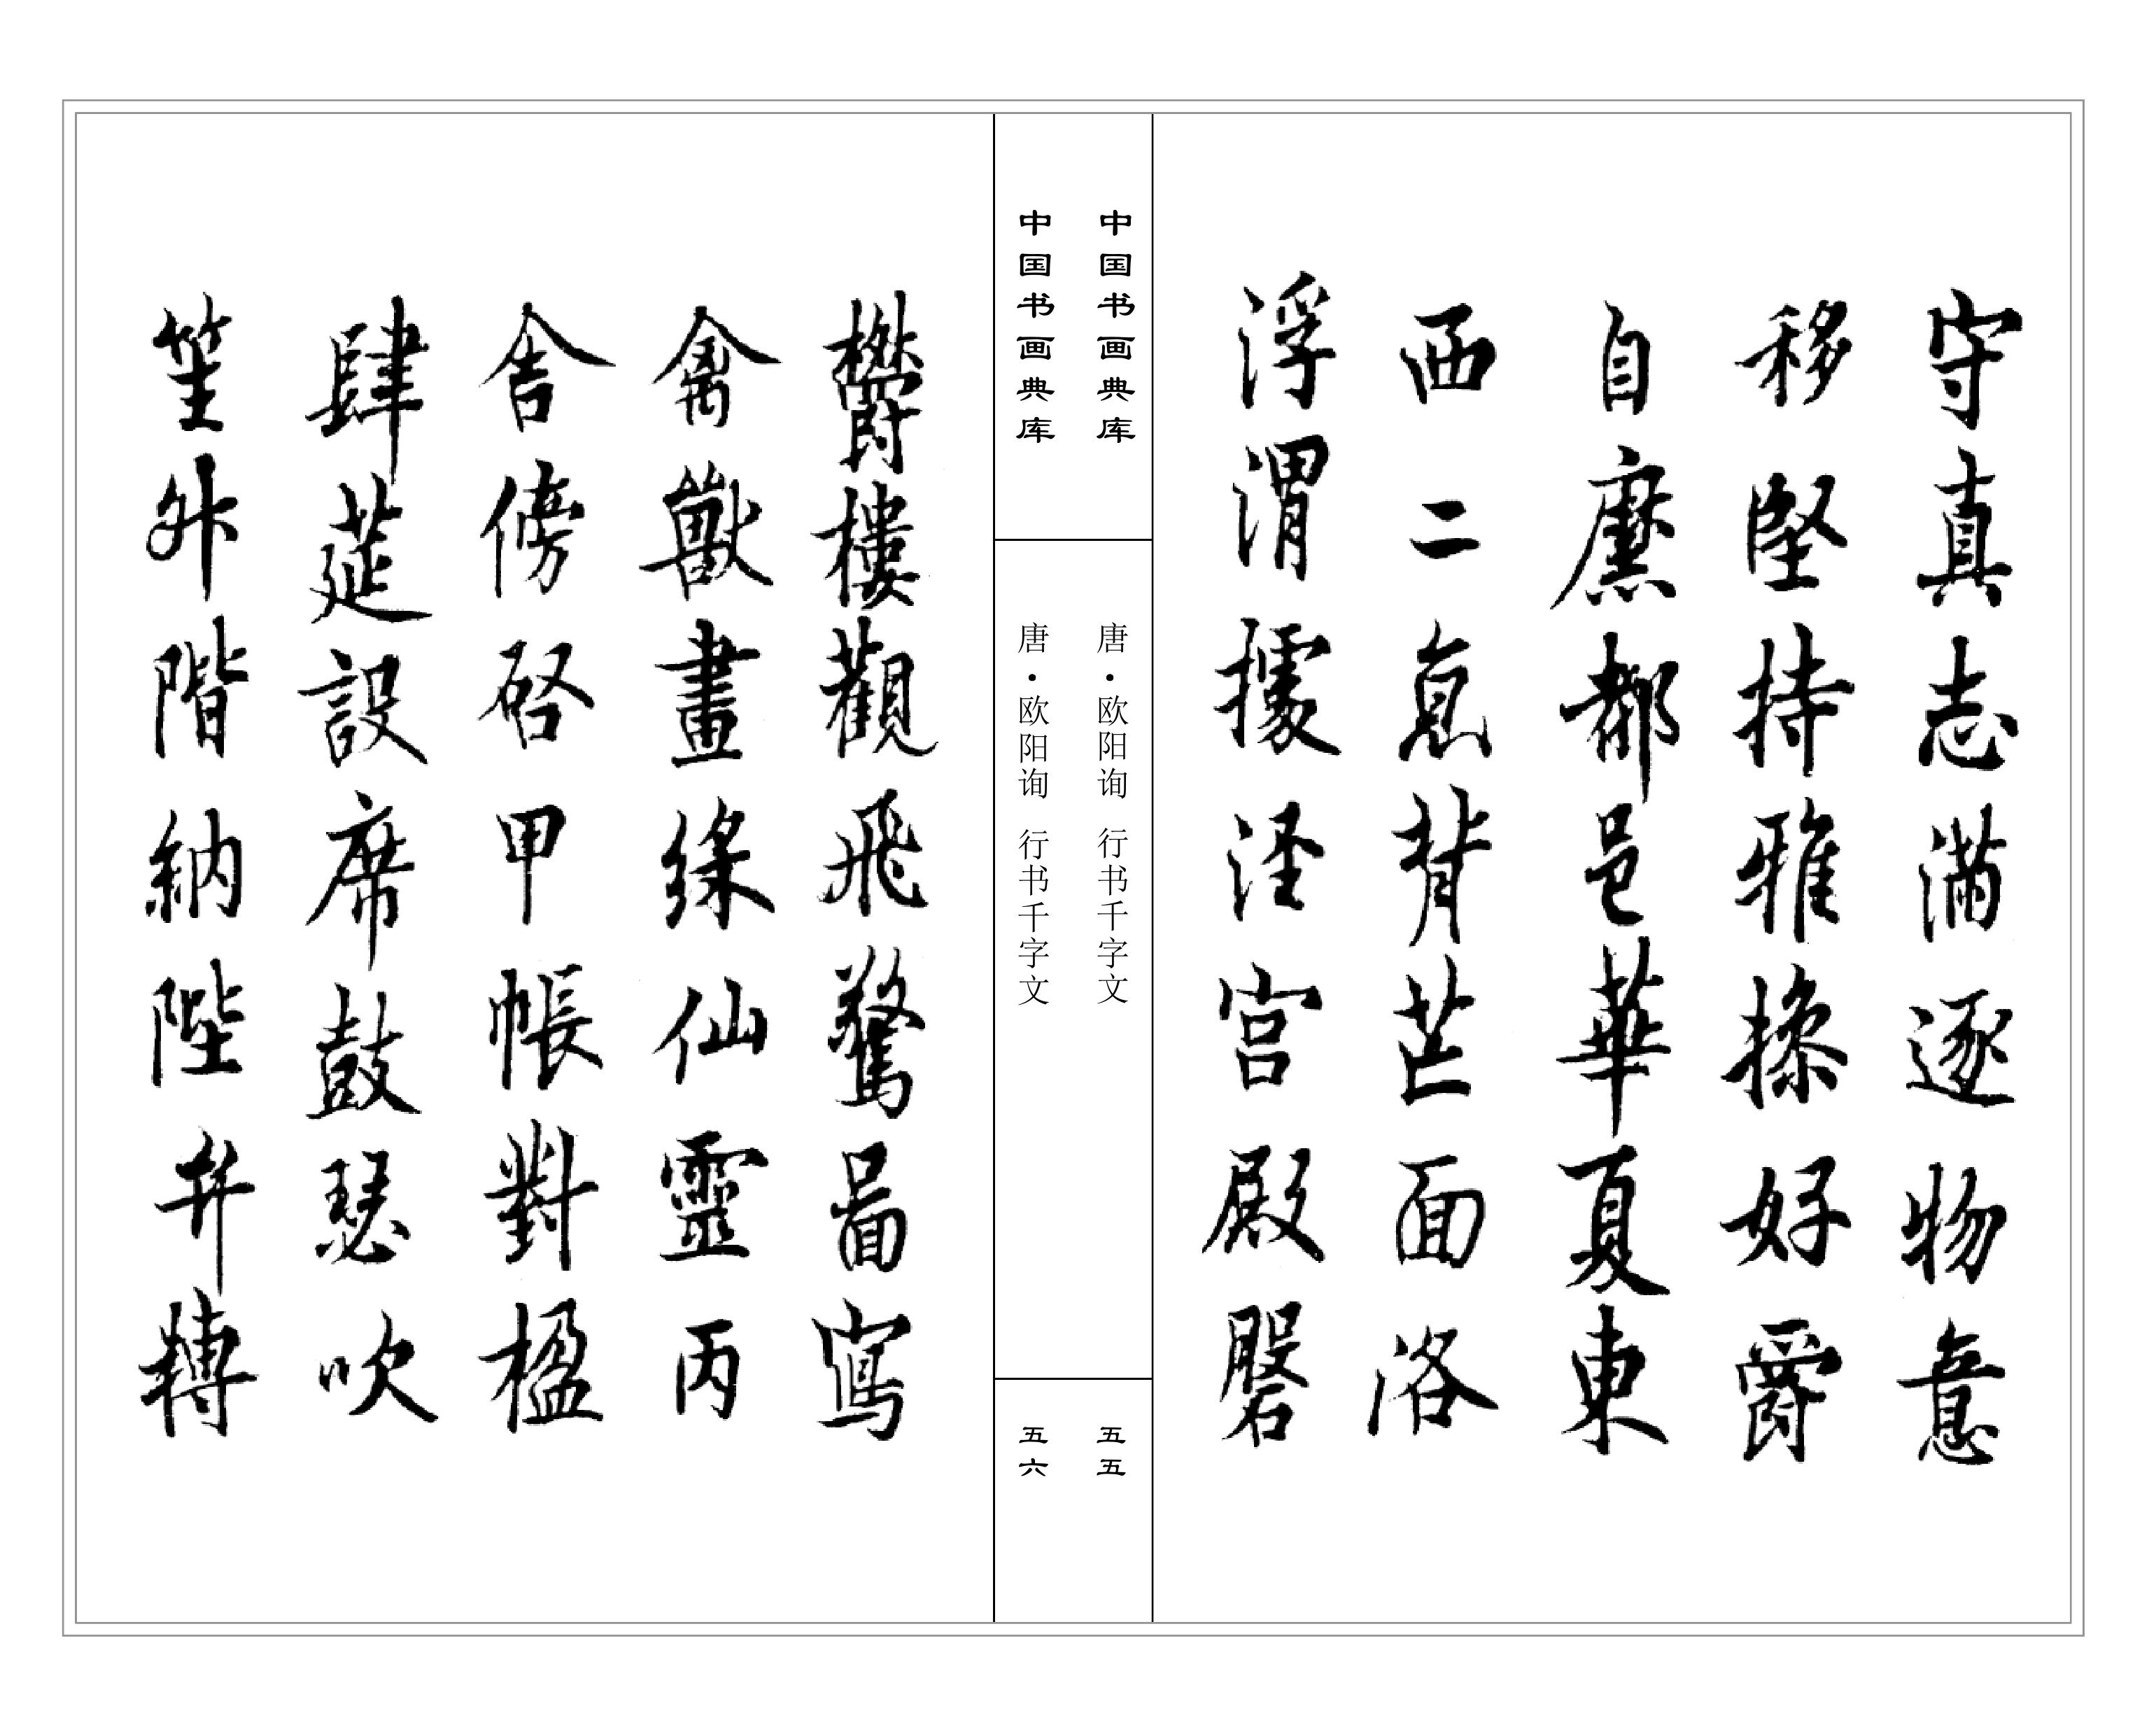 守真志滿逐物意
移堅持雅操好爵
自縻都邑華夏東
西二京背芒面洛
浮渭據涇宮殿磐
中国书画典库
唐·欧阳询 行书千字文
五五
中国书画典库
唐·欧阳询 行书千字文
五六
欝樓觀飛驚啚寫
禽獸畫綵仙靈丙
舍傍啓甲帳對楹
肆莚設席鼓瑟吹
笙升階納陛弁轉